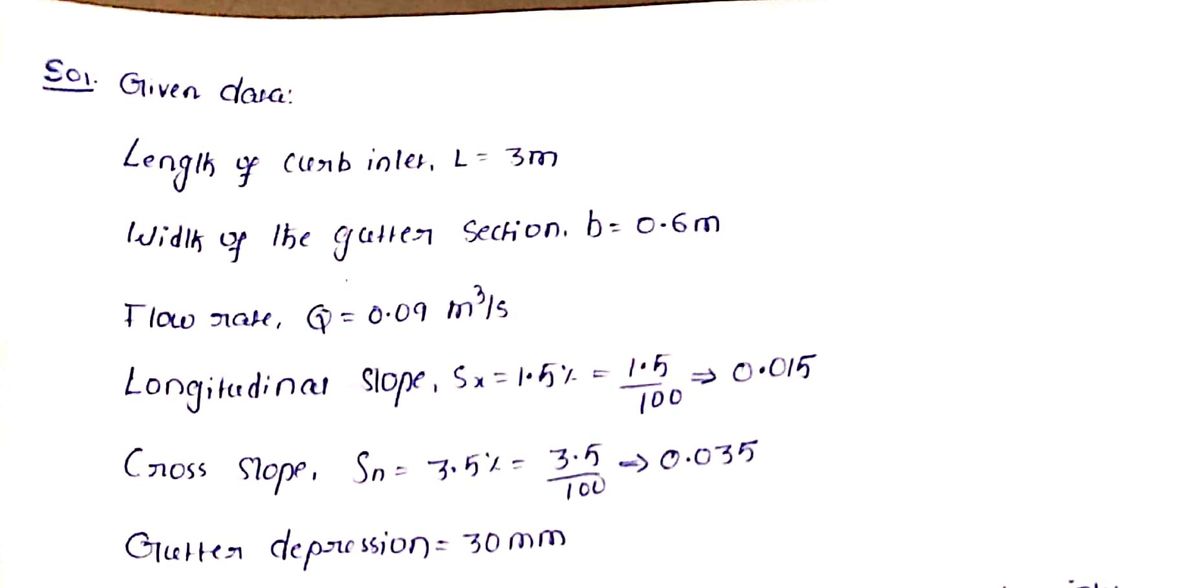 Sol. Given data:
Length of curb inlet, L = 3m
Width of the gutter section, b = 0.6m
Flow rate, Q = 0.09 m³/s
Longitudinal slope, Sx = 1.5% = 1.5/100 ⇒ 0.015
Cross slope, Sn = 3.5% = 3.5/100 ⇒ 0.035
Gutter depression = 30mm